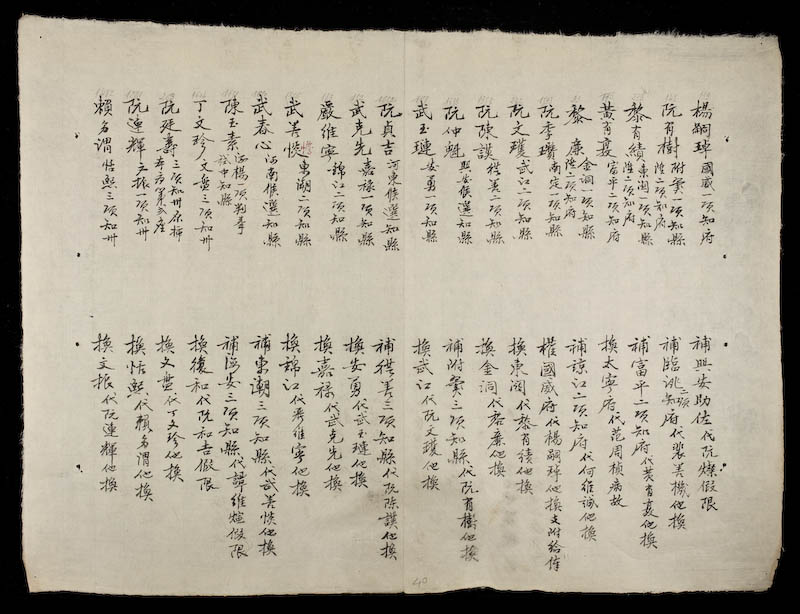 楊嗣璋國威一項知府
補興安助佐代阮燦假限
阮有樹附翼一項知縣陞二項知府
補臨洮二項知府代裴美機他換
黎有績東關一項知縣陞二項知府
補富平二項知府代黄有
黄有 富平二項知府
換太寧府代范周楨病故
黎廉金洞一項知縣陞二項知府
補諒江二項知府代何維誠他換
阮李瓚南定一項知縣
權國威府代楊嗣璋他換支附給俸
阮文瓊武江二項知縣
換東關代黎有績他換
阮陳謨 善二項知縣
換金洞代 廉他換
阮仲魁興安候選知縣
補附翼三項知縣代阮有樹他換
武玉璉安勇一項知縣
換武江代阮文瓊他換
阮貞吉河東候選知縣
補 善三項知縣代阮陳謨他換
武克先嘉祿一項知縣
換安勇代武玉璉他換
嚴維寧錦江二項知縣
換嘉祿代武克先他換
武善 東潮二項知縣
換錦江代嚴維寧他換
武春心河南候選知縣
補東潮三項知縣代武善 他換
陳玉素海楊一項判事 中知縣
補 安三項知縣代譚維 假限
丁文珍文盤三項知州
換 和代阮和吉假限
阮廷壽三項知州
換文盤代丁文珍他換
阮連輝文振一項知州
換恬熙代賴名渭他換
賴名渭恬熙三項知州
換文振代阮連輝他換
40